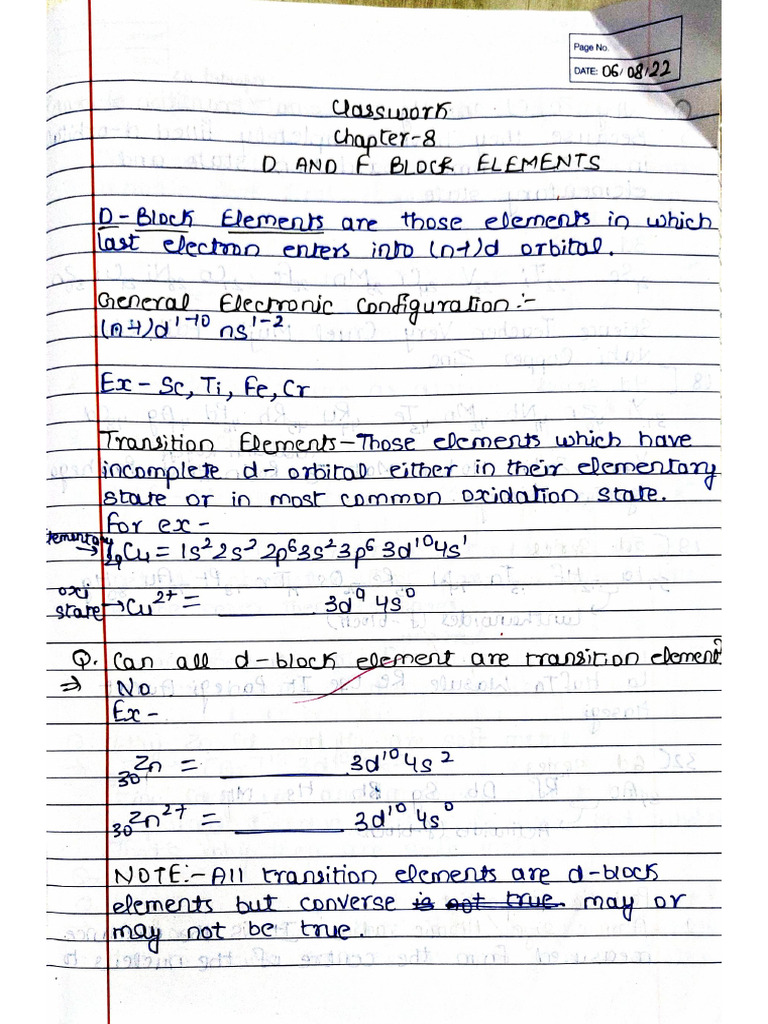 Page No.
DATE: 06/08/22
Classwork
Chapter-8
D AND F BLOCK ELEMENTS
D-Block Elements are those elements in which
last electron enters into (n-1)d orbital.
General Electronic Configuration:-
(n-1)d¹⁻¹⁰ ns¹⁻²
Ex- Sc, Ti, Fe, Cr
Transition Elements-Those elements which have
incomplete d- orbital either in their elementary
state or in most common oxidation state.
For ex-
elementary → ₂₉Cu = 1s² 2s² 2p⁶ 3s² 3p⁶ 3d¹⁰ 4s¹
oxi state → Cu²⁺ = ________ 3d⁹ 4s⁰
Q. Can all d-block element are transition element?
⇒ No
Ex-
₃₀Zn = ________ 3d¹⁰ 4s²
₃₀Zn²⁺ = ________ 3d¹⁰ 4s⁰
NOTE:- All transition elements are d-block
elements but converse is not true may or
may not be true.